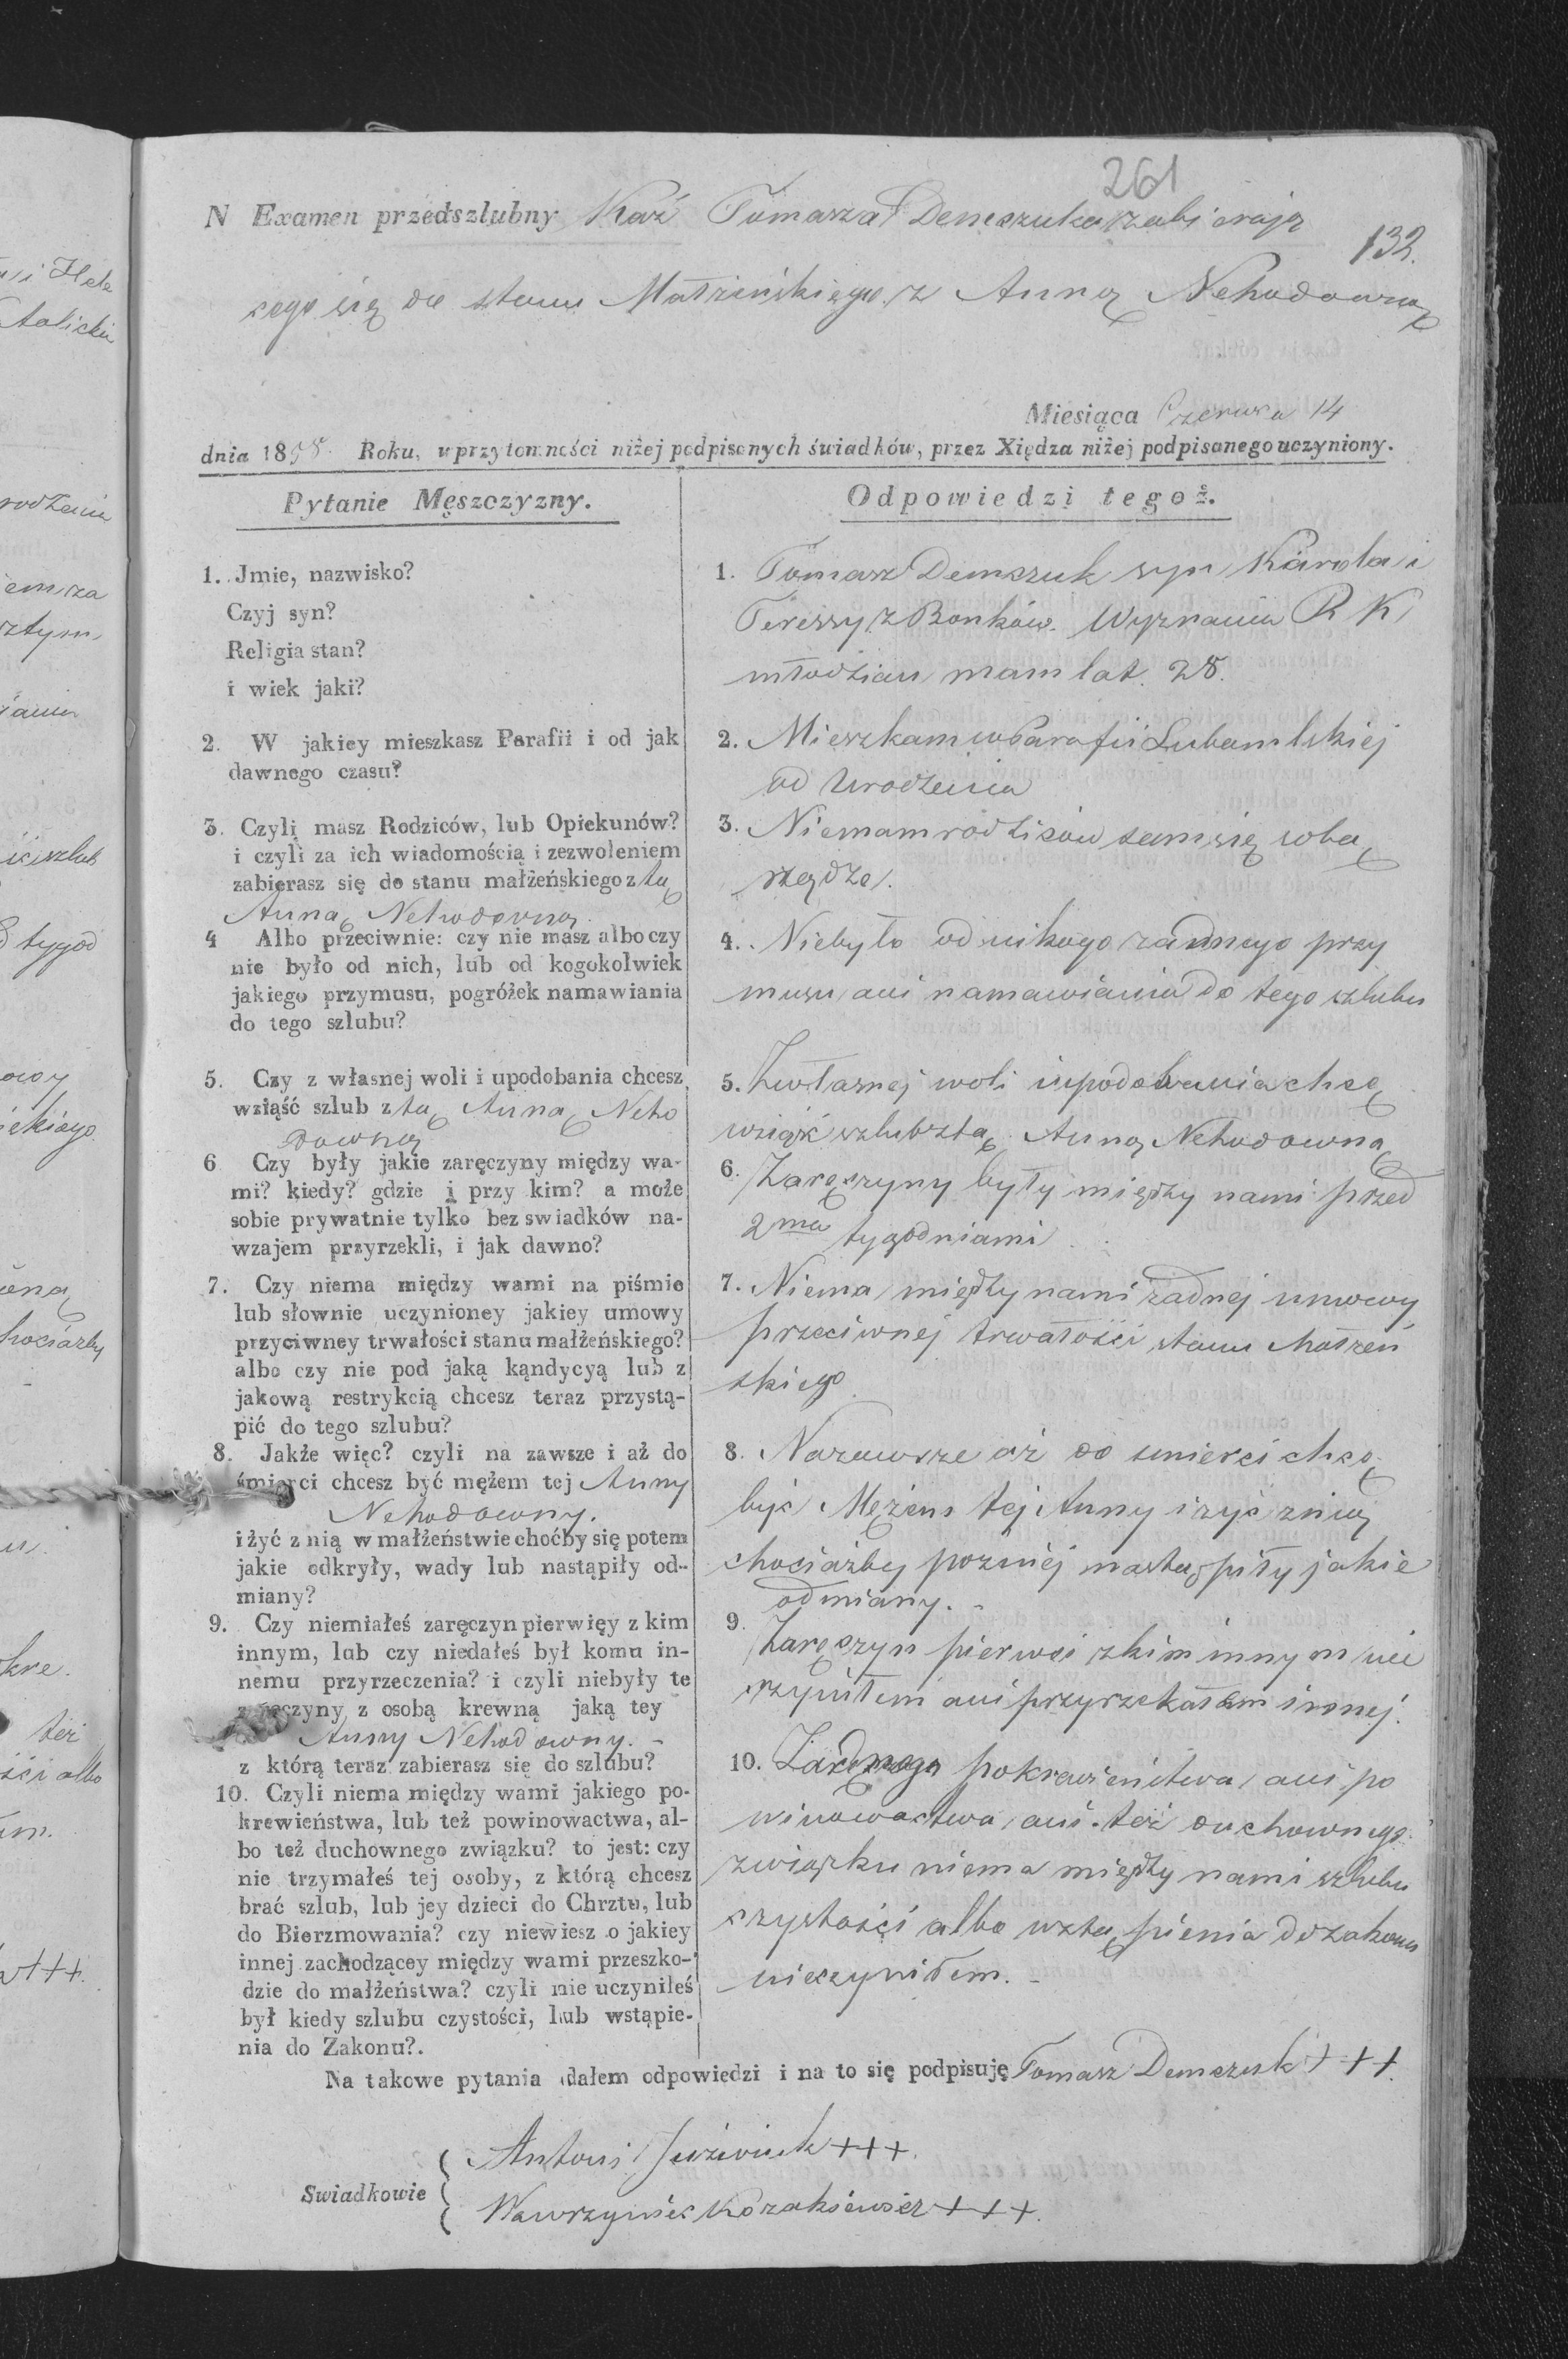 261
N Examen przedszlubny Kaź Tomasza Demczuka zabierają
132.
cego się do stanu Małżeńskiego z Anną Nehodowną
Miesiąca Czerwca 14
dnia 1858. Roku, w przytomności niżej podpisanych świadków, przez Xiędza niżej podpisanego uczyniony.
Pytanie Męszczyzny.
1. Jmie, nazwisko?
Czyj syn?
Religia stan?
i wiek jaki?
2. W jakiey mieszkasz Parafii i od jak
dawnego czasu?
3. Czyli masz Rodziców, lub Opiekunów?
i czyli za ich wiadomością i zezwoleniem
zabierasz się do stanu małżeńskiego z tą
Anną Nehodowną.
4 Albo przeciwnie: czy nie masz albo czy
nie było od nich, lub od kogokolwiek
jakiego przymusu, pogróżek namawiania
do tego szlubu?
5. Czy z własnej woli i upodobania chcesz
wziąść szlub z tą Anną Neho
downą
6 Czy były jakie zaręczyny między wa-
mi? kiedy? gdzie i przy kim? a może
sobie prywatnie tylko bez swiadków na-
wzajem przyrzekli, i jak dawno?
7. Czy niema między wami na piśmie
lub słownie uczynioney jakiey umowy
przyciwney trwałości stanu małżeńskiego?
albo czy nie pod jaką kąndycyą lub z
jakową restrykcią chcesz teraz przystą-
pić do tego szlubu?
8. Jakże więc? czyli na zawsze i aż do
śmierci chcesz być mężem tej Anny
Nehodowny.
i żyć z nią w małżeństwie choćby się potem
jakie odkryły, wady lub nastąpiły od-
miany?
9. Czy niemiałeś zaręczyn pierwięy z kim
innym, lub czy niedałeś był komu in-
nemu przyrzeczenia? i czyli niebyły te
zaręczyny z osobą krewną jaką tey
Anny Nehodowny. -
z którą teraz zabierasz się do szlubu?
10. Czyli niema między wami jakiego po-
krewieństwa, lub też powinowactwa, al-
bo też duchownego związku? to jest: czy
nie trzymałeś tej osoby, z którą chcesz
brać szlub, lub jey dzieci do Chrztu, lub
do Bierzmowania? czy niewiesz o jakiey
innej zachodzącey między wami przeszko-
dzie do małżeństwa? czyli nie uczyniłeś
był kiedy szlubu czystości, lub wstąpie-
nia do Zakonu?.
Odpowiedzi tegoż.
1. Tomasz Demczuk syn Karola i
Teressy z Bonków. Wyznania R K
młodzian mam lat 28.
2. Mieszkam w Parafii Lubomlskiej
od Urodzenia
3. Niemam rodziców sam się sobą
rządzę.
4. Niebyło od nikogo żadnego przy
musu ani namawiania do tego szlubu
5. Zwłasnej woli i upodobania chcę
wziąść szlub z tą Anną Nehodowną
6. Zaręczyny były między nami przed
2ma tygodniami
7. Niema między nami żadnej umowy
przeciwnej trwałości stanu Małżeń
skiego
8. Nazawsze aż do smierci chcę
być Mężem tej Anny i żyć z nią
chociażby pozniej nastąpiły jakie
odmiany. -
9. Zaręczyn pierwei z kim innym nie
czyniłem ani przyrzekałem innej.
10. Żadnego pokrewieństwa ani po
winowactwa, ani też duchownego
związku niema między nami szlubu
czystości albo wstąpienia do zakonu
nieczyniłem. -
Na takowe pytania dałem odpowiedzi i na to się podpisuję Tomasz Demczuk +++.
Swiadkowie
Antoni Juźwiuk +++.
Wawrzyniec Kozakiewicz +++.